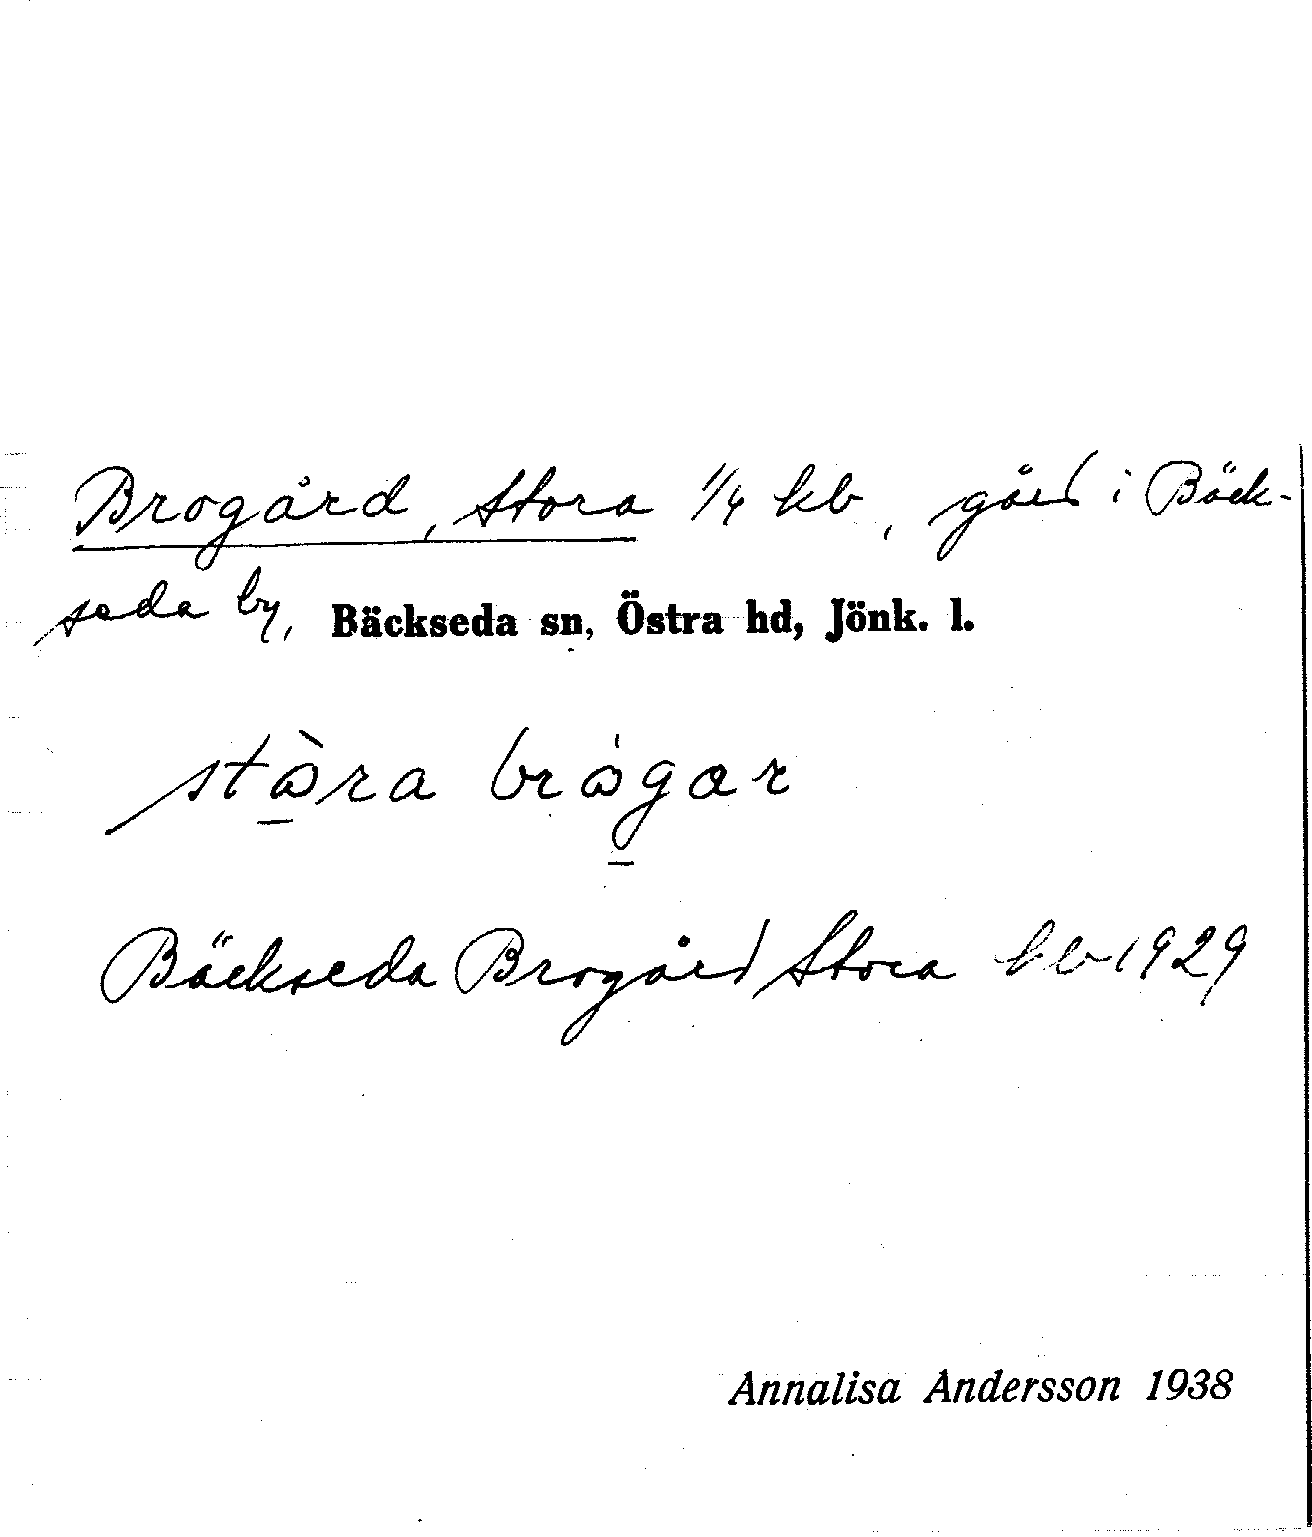 Brogård, Stora 1/4 kb, gård i Bäck-
seda by, Bäckseda sn, Östra hd, Jönk. l.
stòra brógar
Bäckseda Brogård Stora kb 1929
Annalisa Andersson 1938